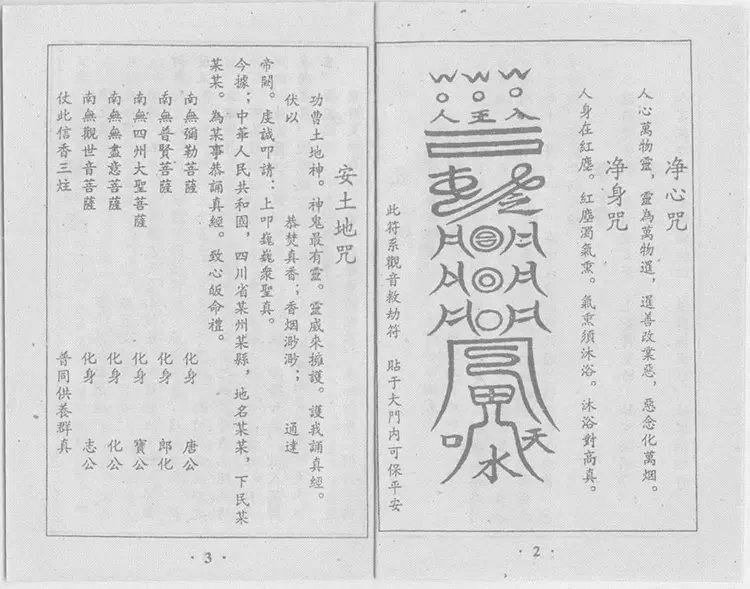 净心咒
人心萬物靈，靈為萬物遷，遷善改業惡，惡念化萬烟。
净身咒
人身在紅塵。紅塵濁氣熏。氣熏須沐浴。沐浴對高真。
人王人
天
水
口
此符系觀音救劫符 貼于大門内可保平安
·2·
安土地咒
功曹土地神。神鬼最有靈。靈威來擁護。護我誦真經。
伏以 恭焚真香；香烟渺渺； 通達
帝闕。虔誠叩請：上叩巍巍衆聖真。
今據；中華人民共和國，四川省某州某縣，地名某某，下民某
某某。為某事恭誦真經。致心皈命禮。
南無彌勒菩薩 化身 唐公
南無普賢菩薩 化身 郎化
南無四州大聖菩薩 化身 寶公
南無無盡意菩薩 化身 化公
南無觀世音菩薩 化身 志公
仗此信香三炷 普同供養群真
·3·